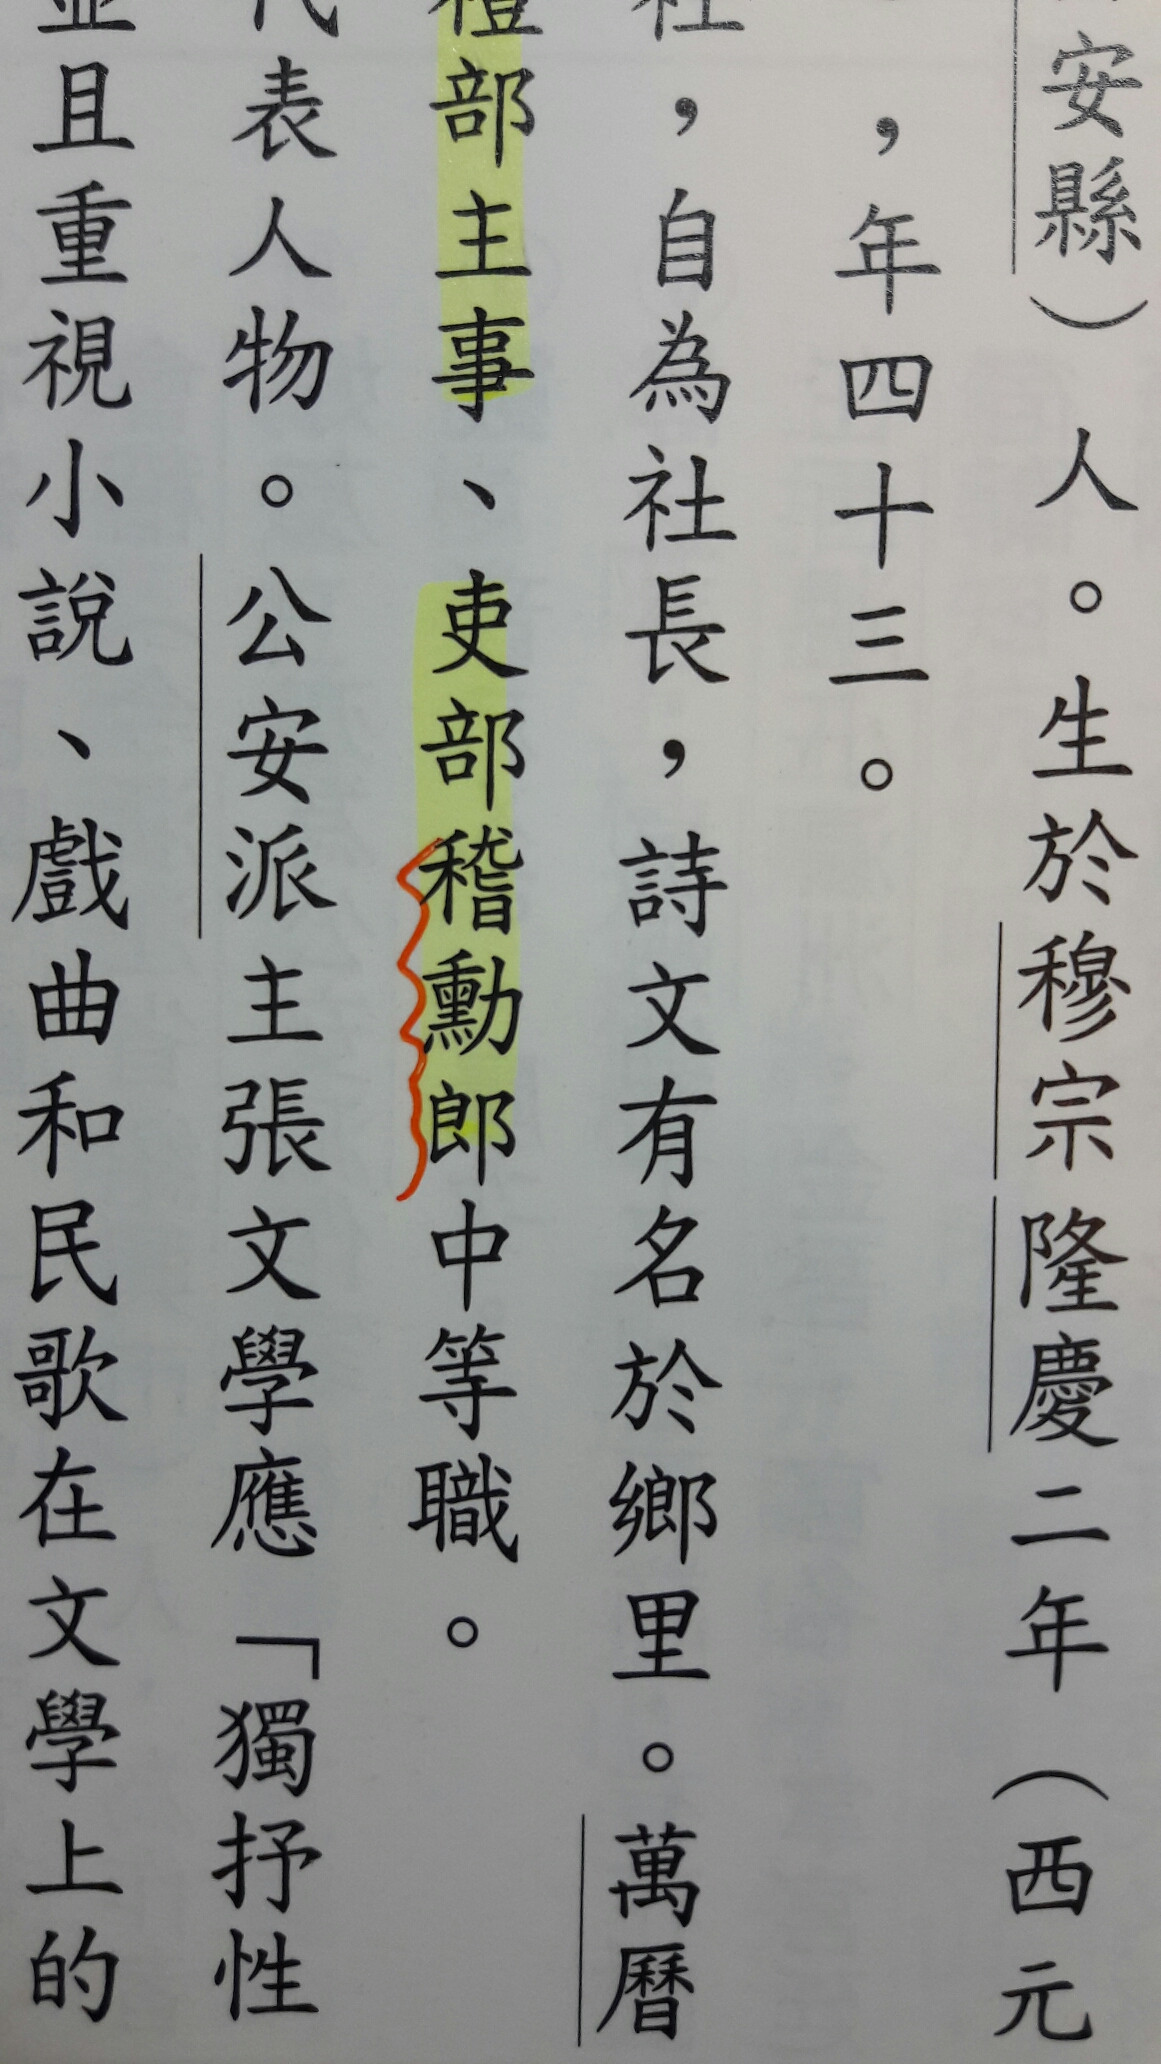 安縣）人。生於穆宗隆慶二年（西元
，年四十三。
社，自為社長，詩文有名於鄉里。萬曆
禮部主事、吏部稽勳郎中等職。
代表人物。公安派主張文學應「獨抒性
並且重視小說、戲曲和民歌在文學上的